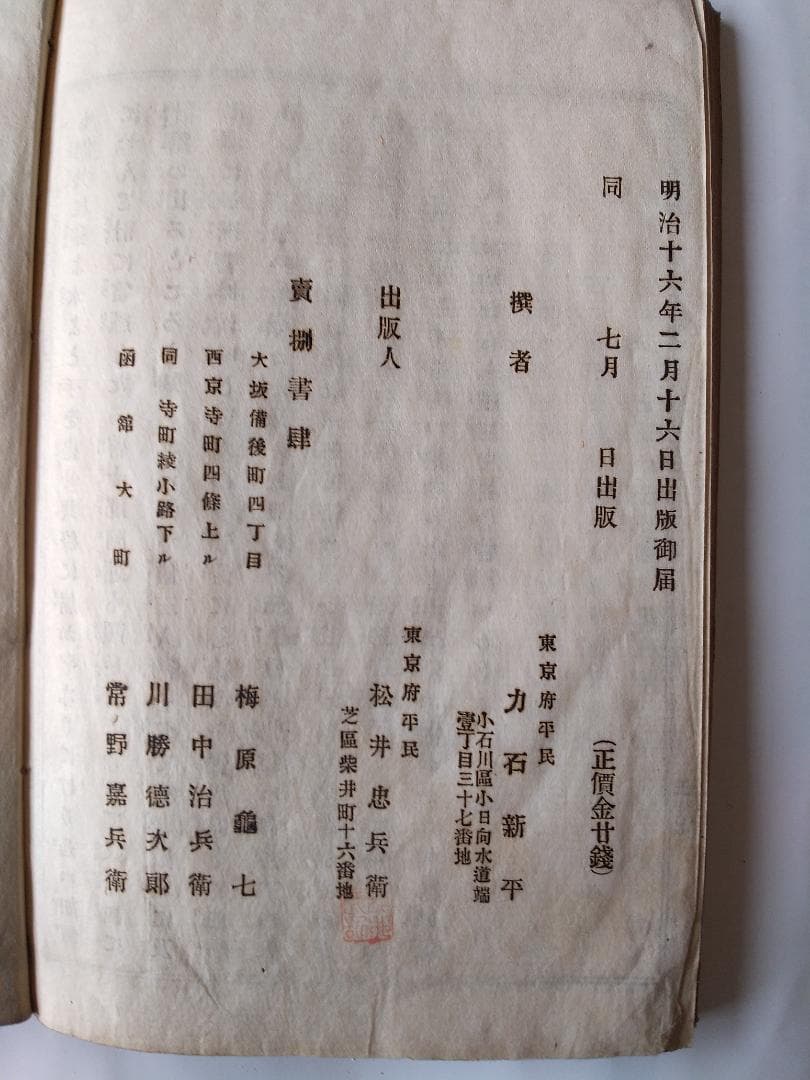 明治十六年二月十六日出版御届
同 七月 日出版
(正價金廿錢)
撰者
東京府平民
力石新平
小石川區小日向水道端
壹丁目三十七番地
出版人
東京府平民
松井忠兵衛
芝區柴井町十六番地
賣捌書肆
大坂備後町四丁目
梅原龜七
西京寺町四條上ル
田中治兵衛
同 寺町綾小路下ル
川勝德次郎
函館大町
常野嘉兵衛